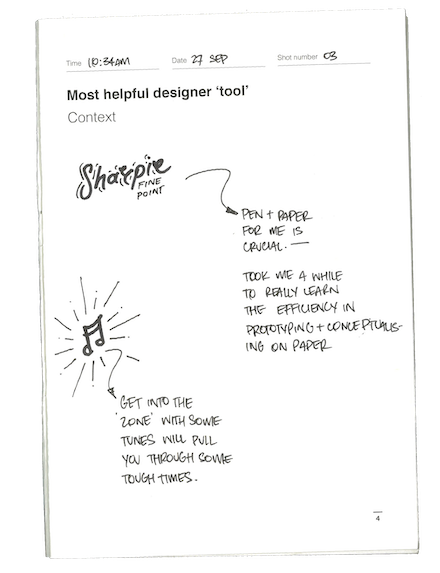 Time 10:34AM Date 27 SEP Shot number 03
Most helpful designer ‘tool’
Context
Sharpie
FINE
POINT
PEN + PAPER
FOR ME IS
CRUCIAL. —
TOOK ME A WHILE
TO REALLY LEARN
THE EFFICIENCY IN
PROTOTYPING + CONCEPTUALIS-
ING ON PAPER
GET INTO THE
'ZONE' WITH SOME
TUNES WILL PULL
YOU THROUGH SOME
TOUGH TIMES.
4